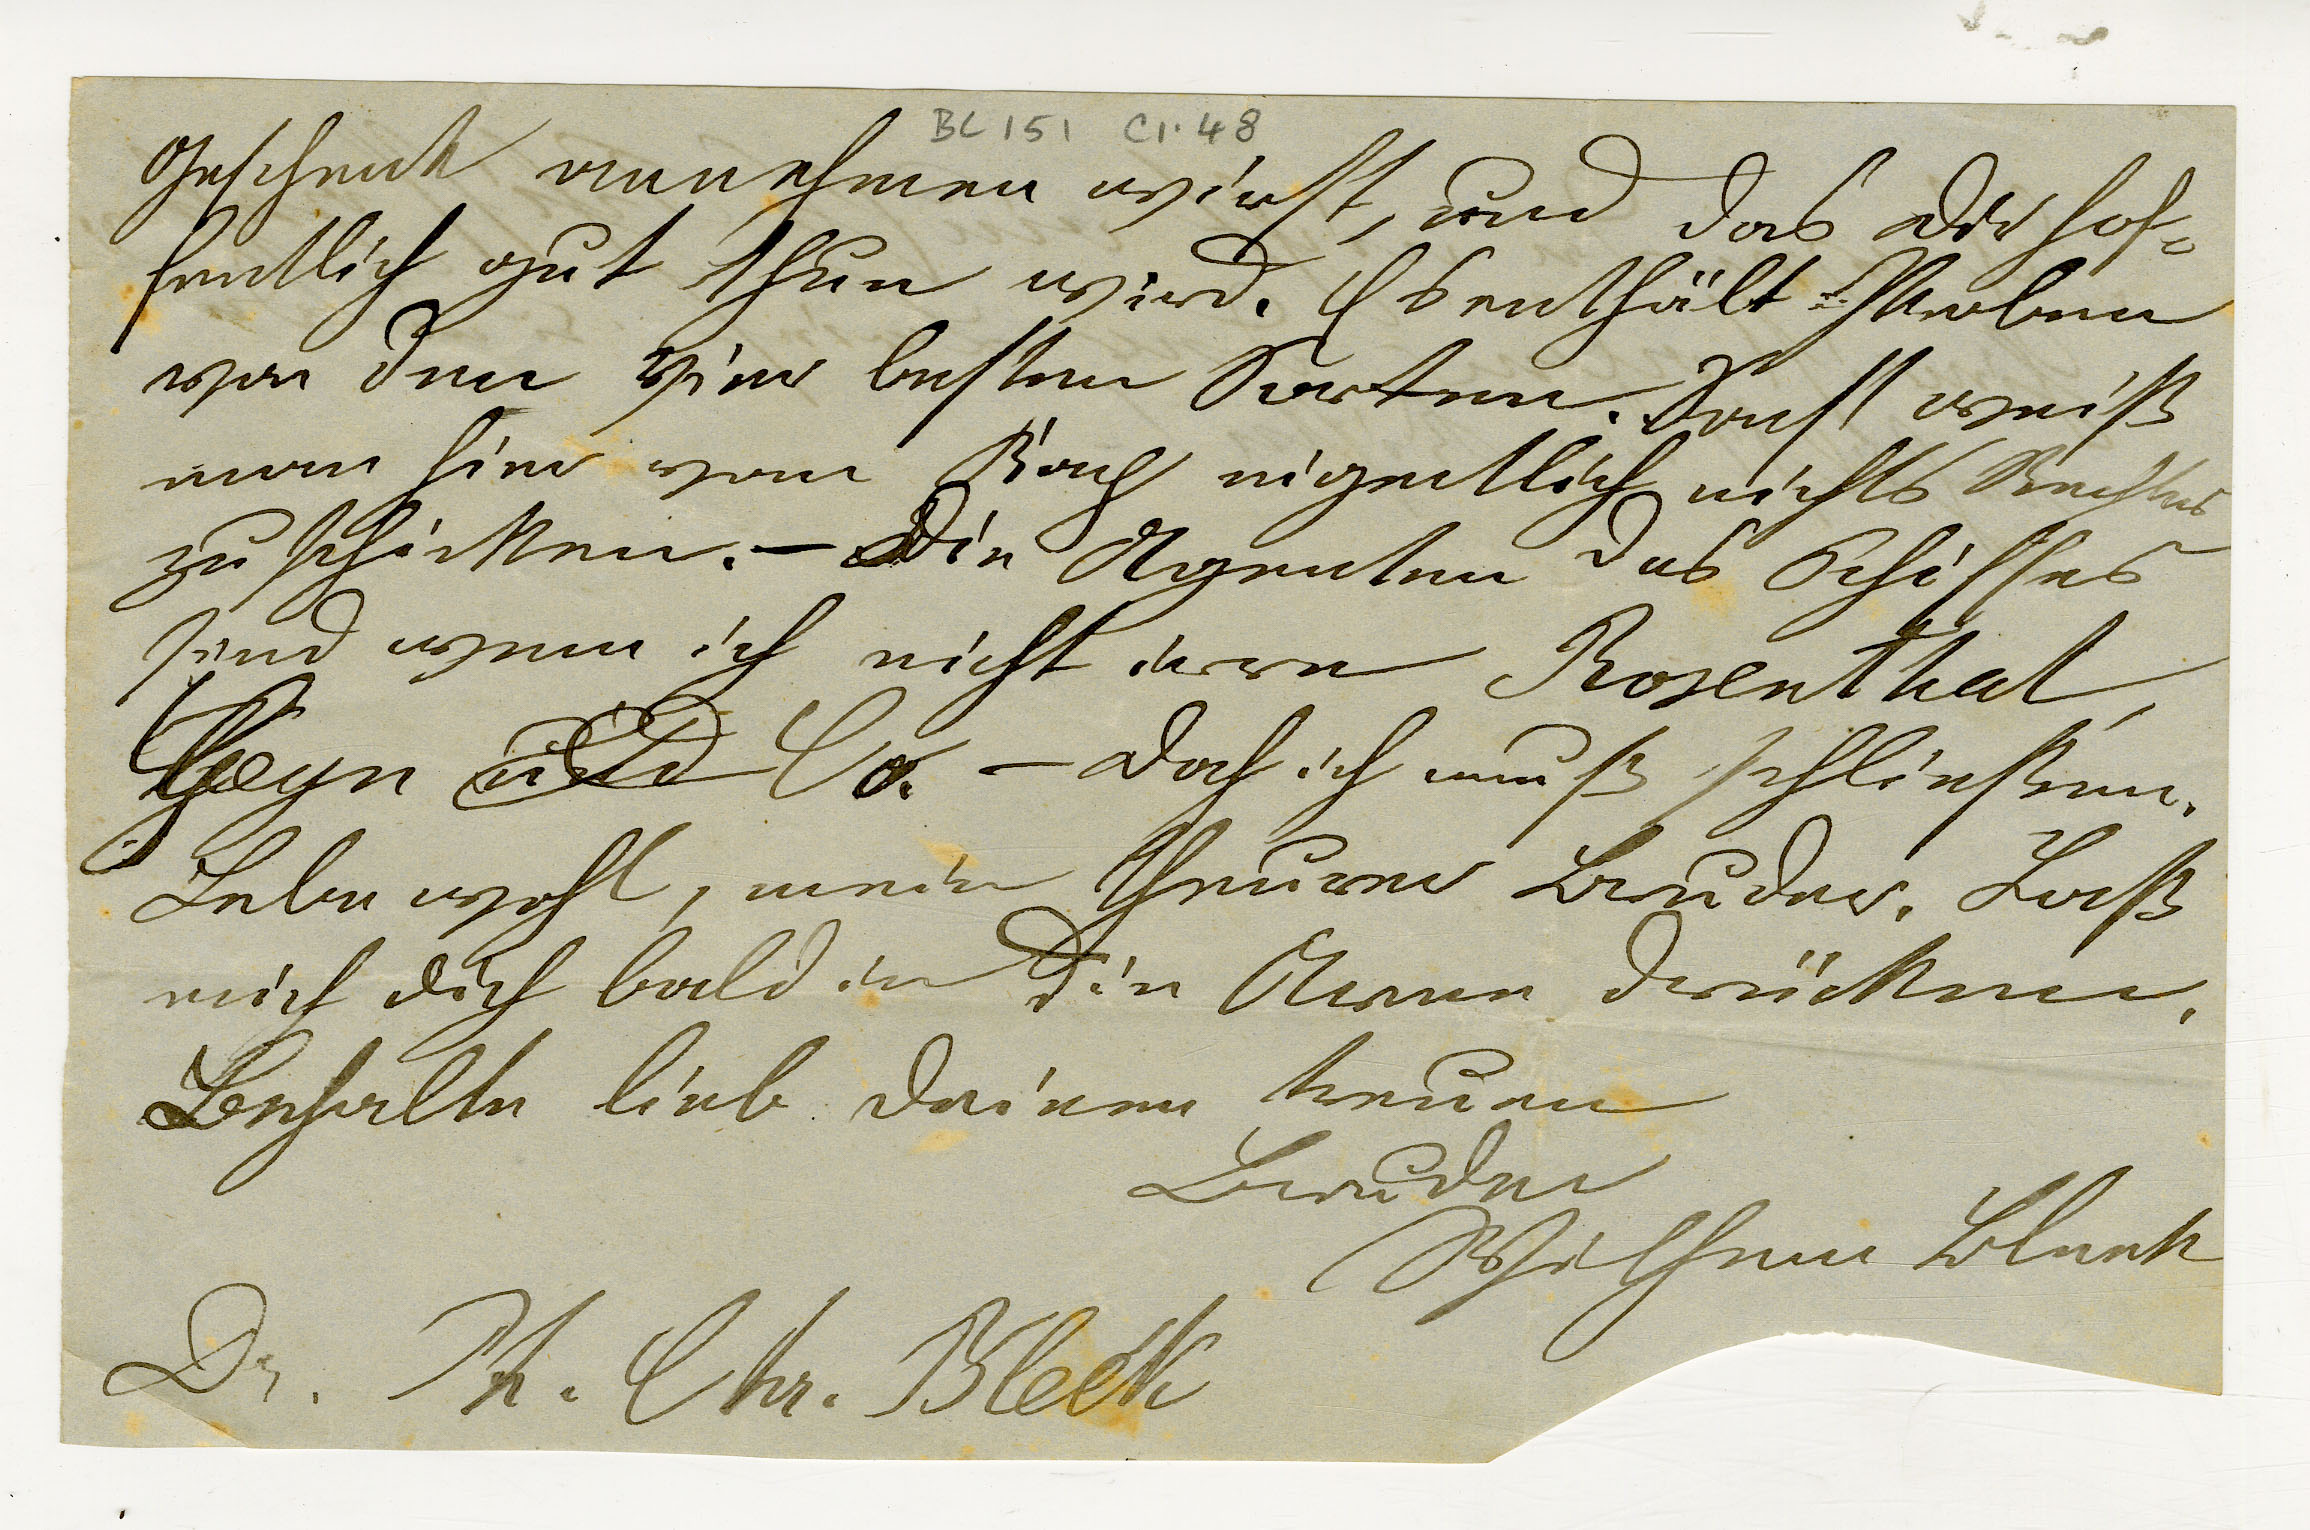 BC 151 C1.48
Geschenk annehmen wirst, und das Dir hof-
fentlich gut thun wird. Es enthält Proben
von den vier besten Sorten. Sonst weiß
man hier vom Kap eigentlich nichts Rechtes
zu schicken. – Die Agenten des Schiffes
sind wenn ich nicht irre Rosenthal,
und Co. – Doch ich muß schließen.
Lebe wohl, mein theurer Bruder. Laß
mich Dich bald in die Arme drücken.
Behalte lieb Deinen treuen
Bruder
Wilhelm Bleek
Dr. Ph. Chr. Bleek